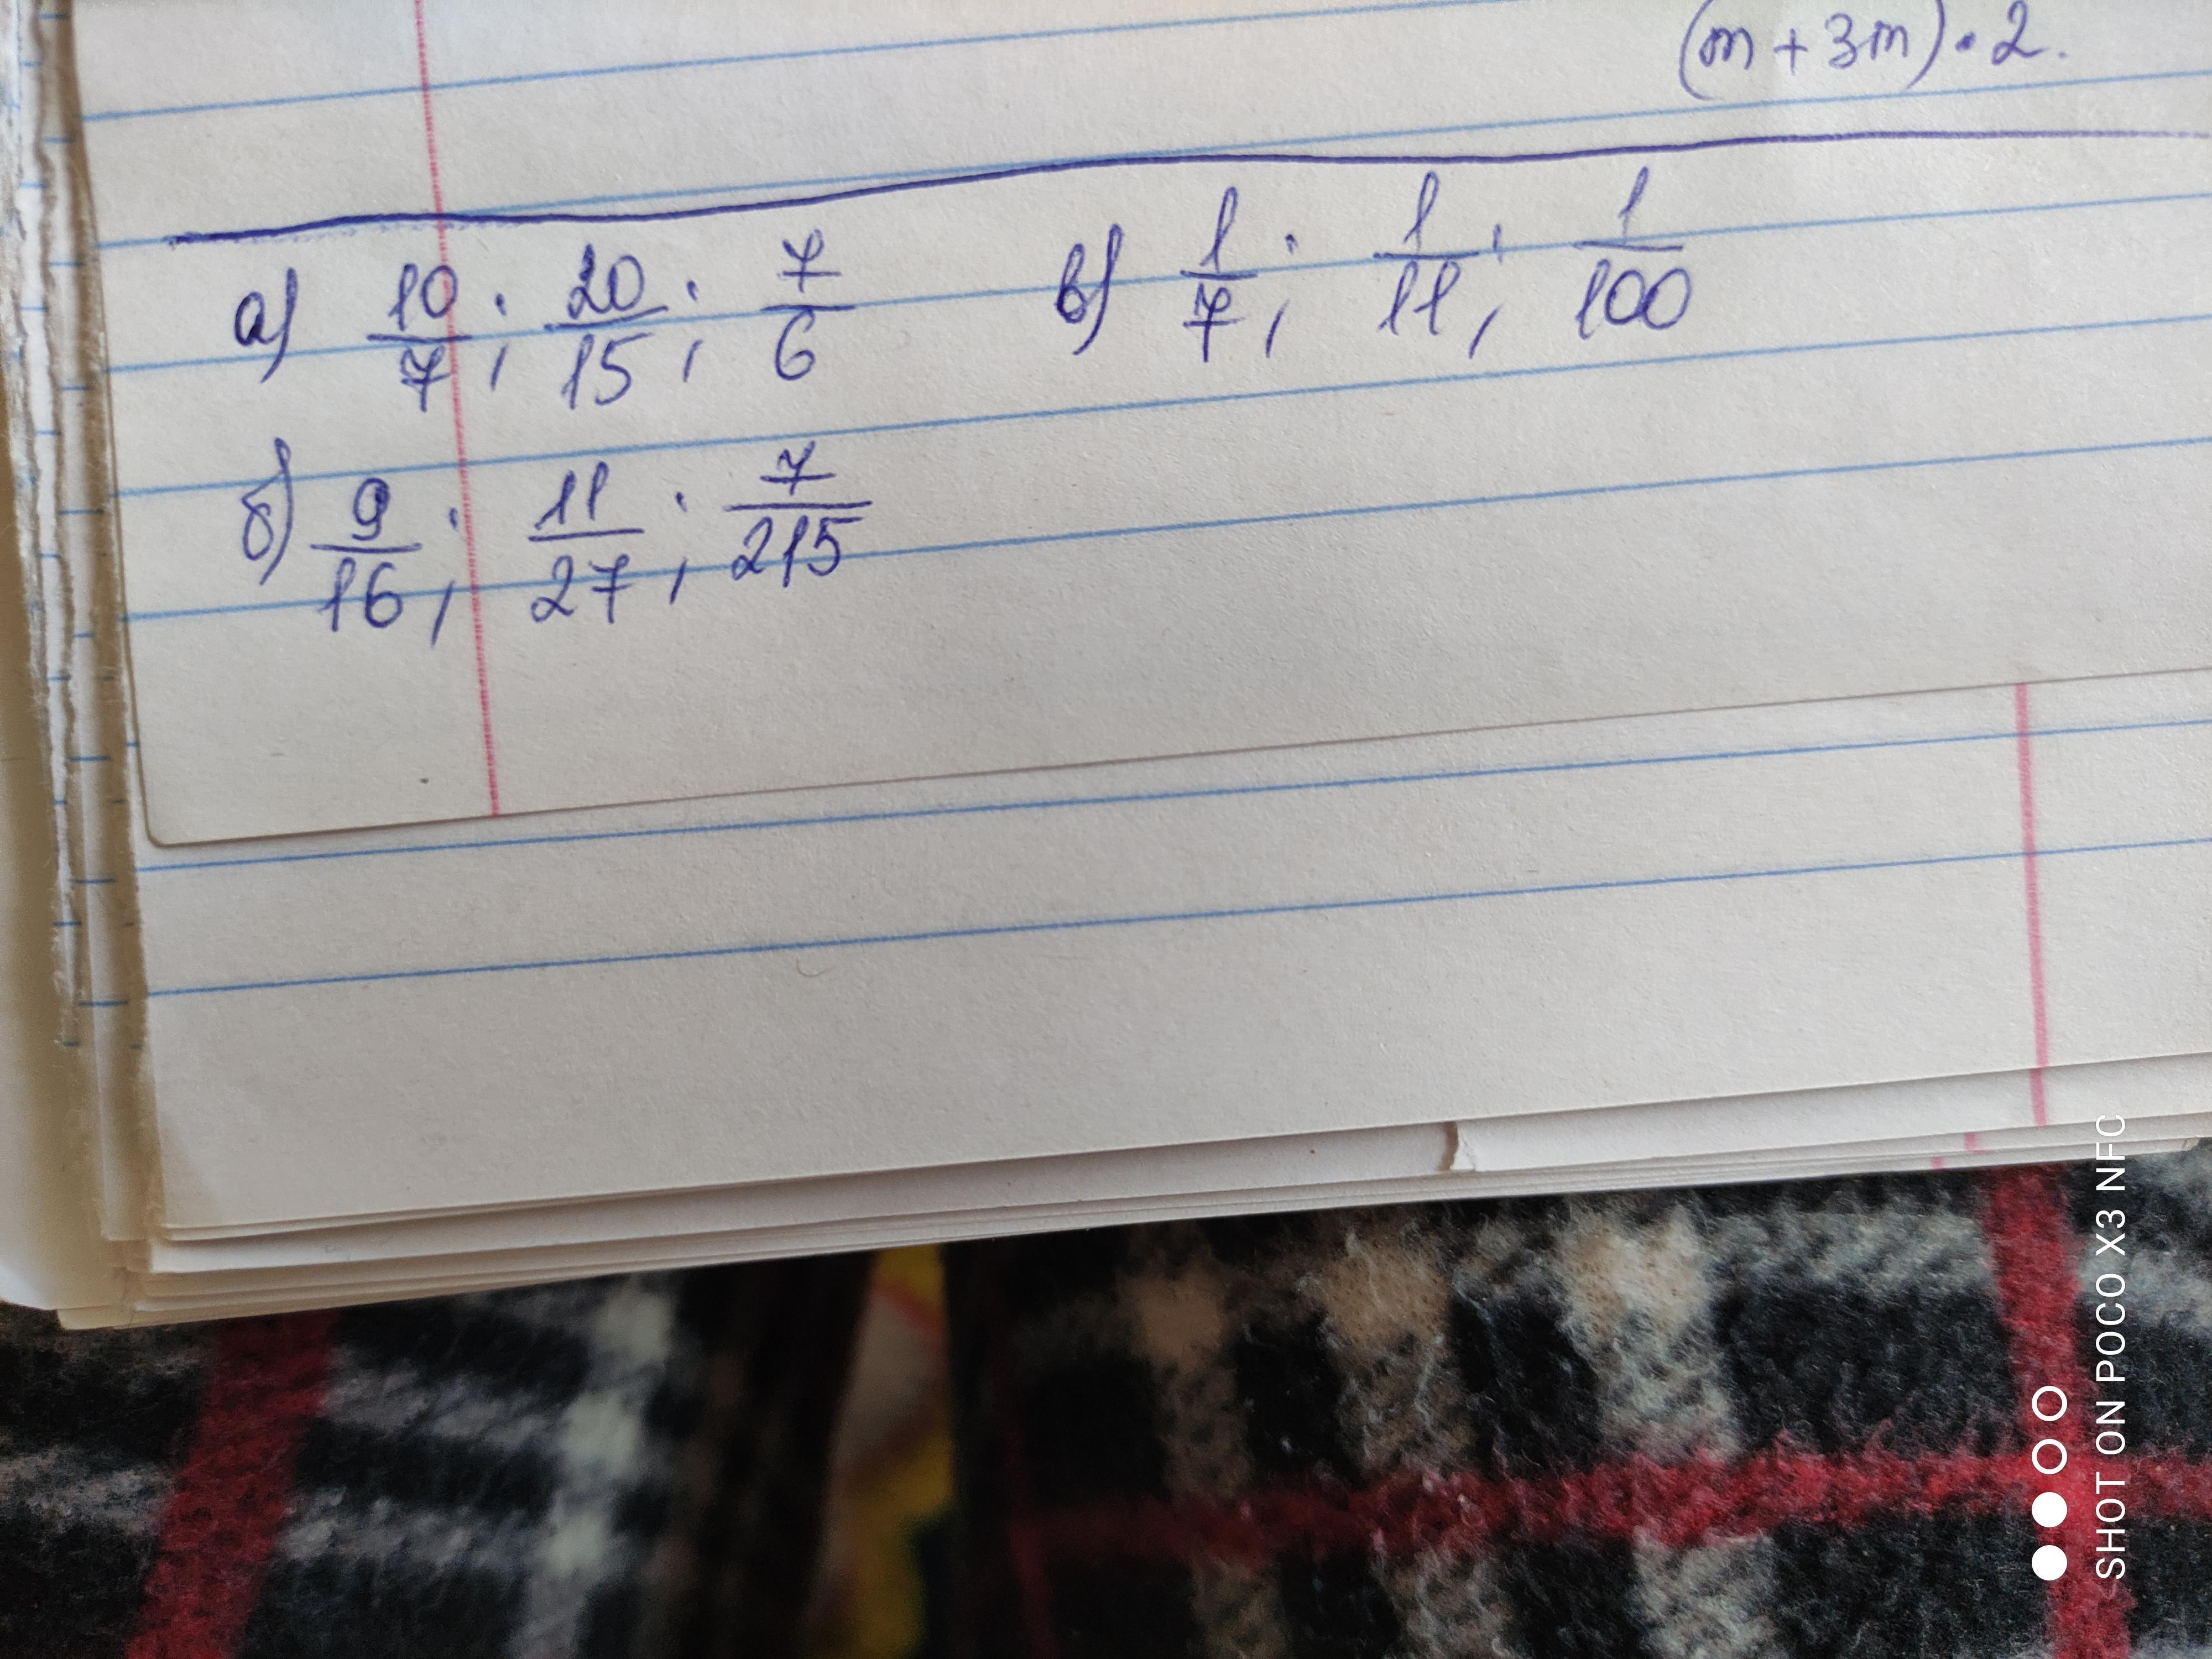 (m + 3m) • 2.
а) 10/7; 20/15; 7/6
в) 1/7; 1/11; 1/100
б) 9/16; 11/27; 7/215
SHOT ON POCO X3 NFC